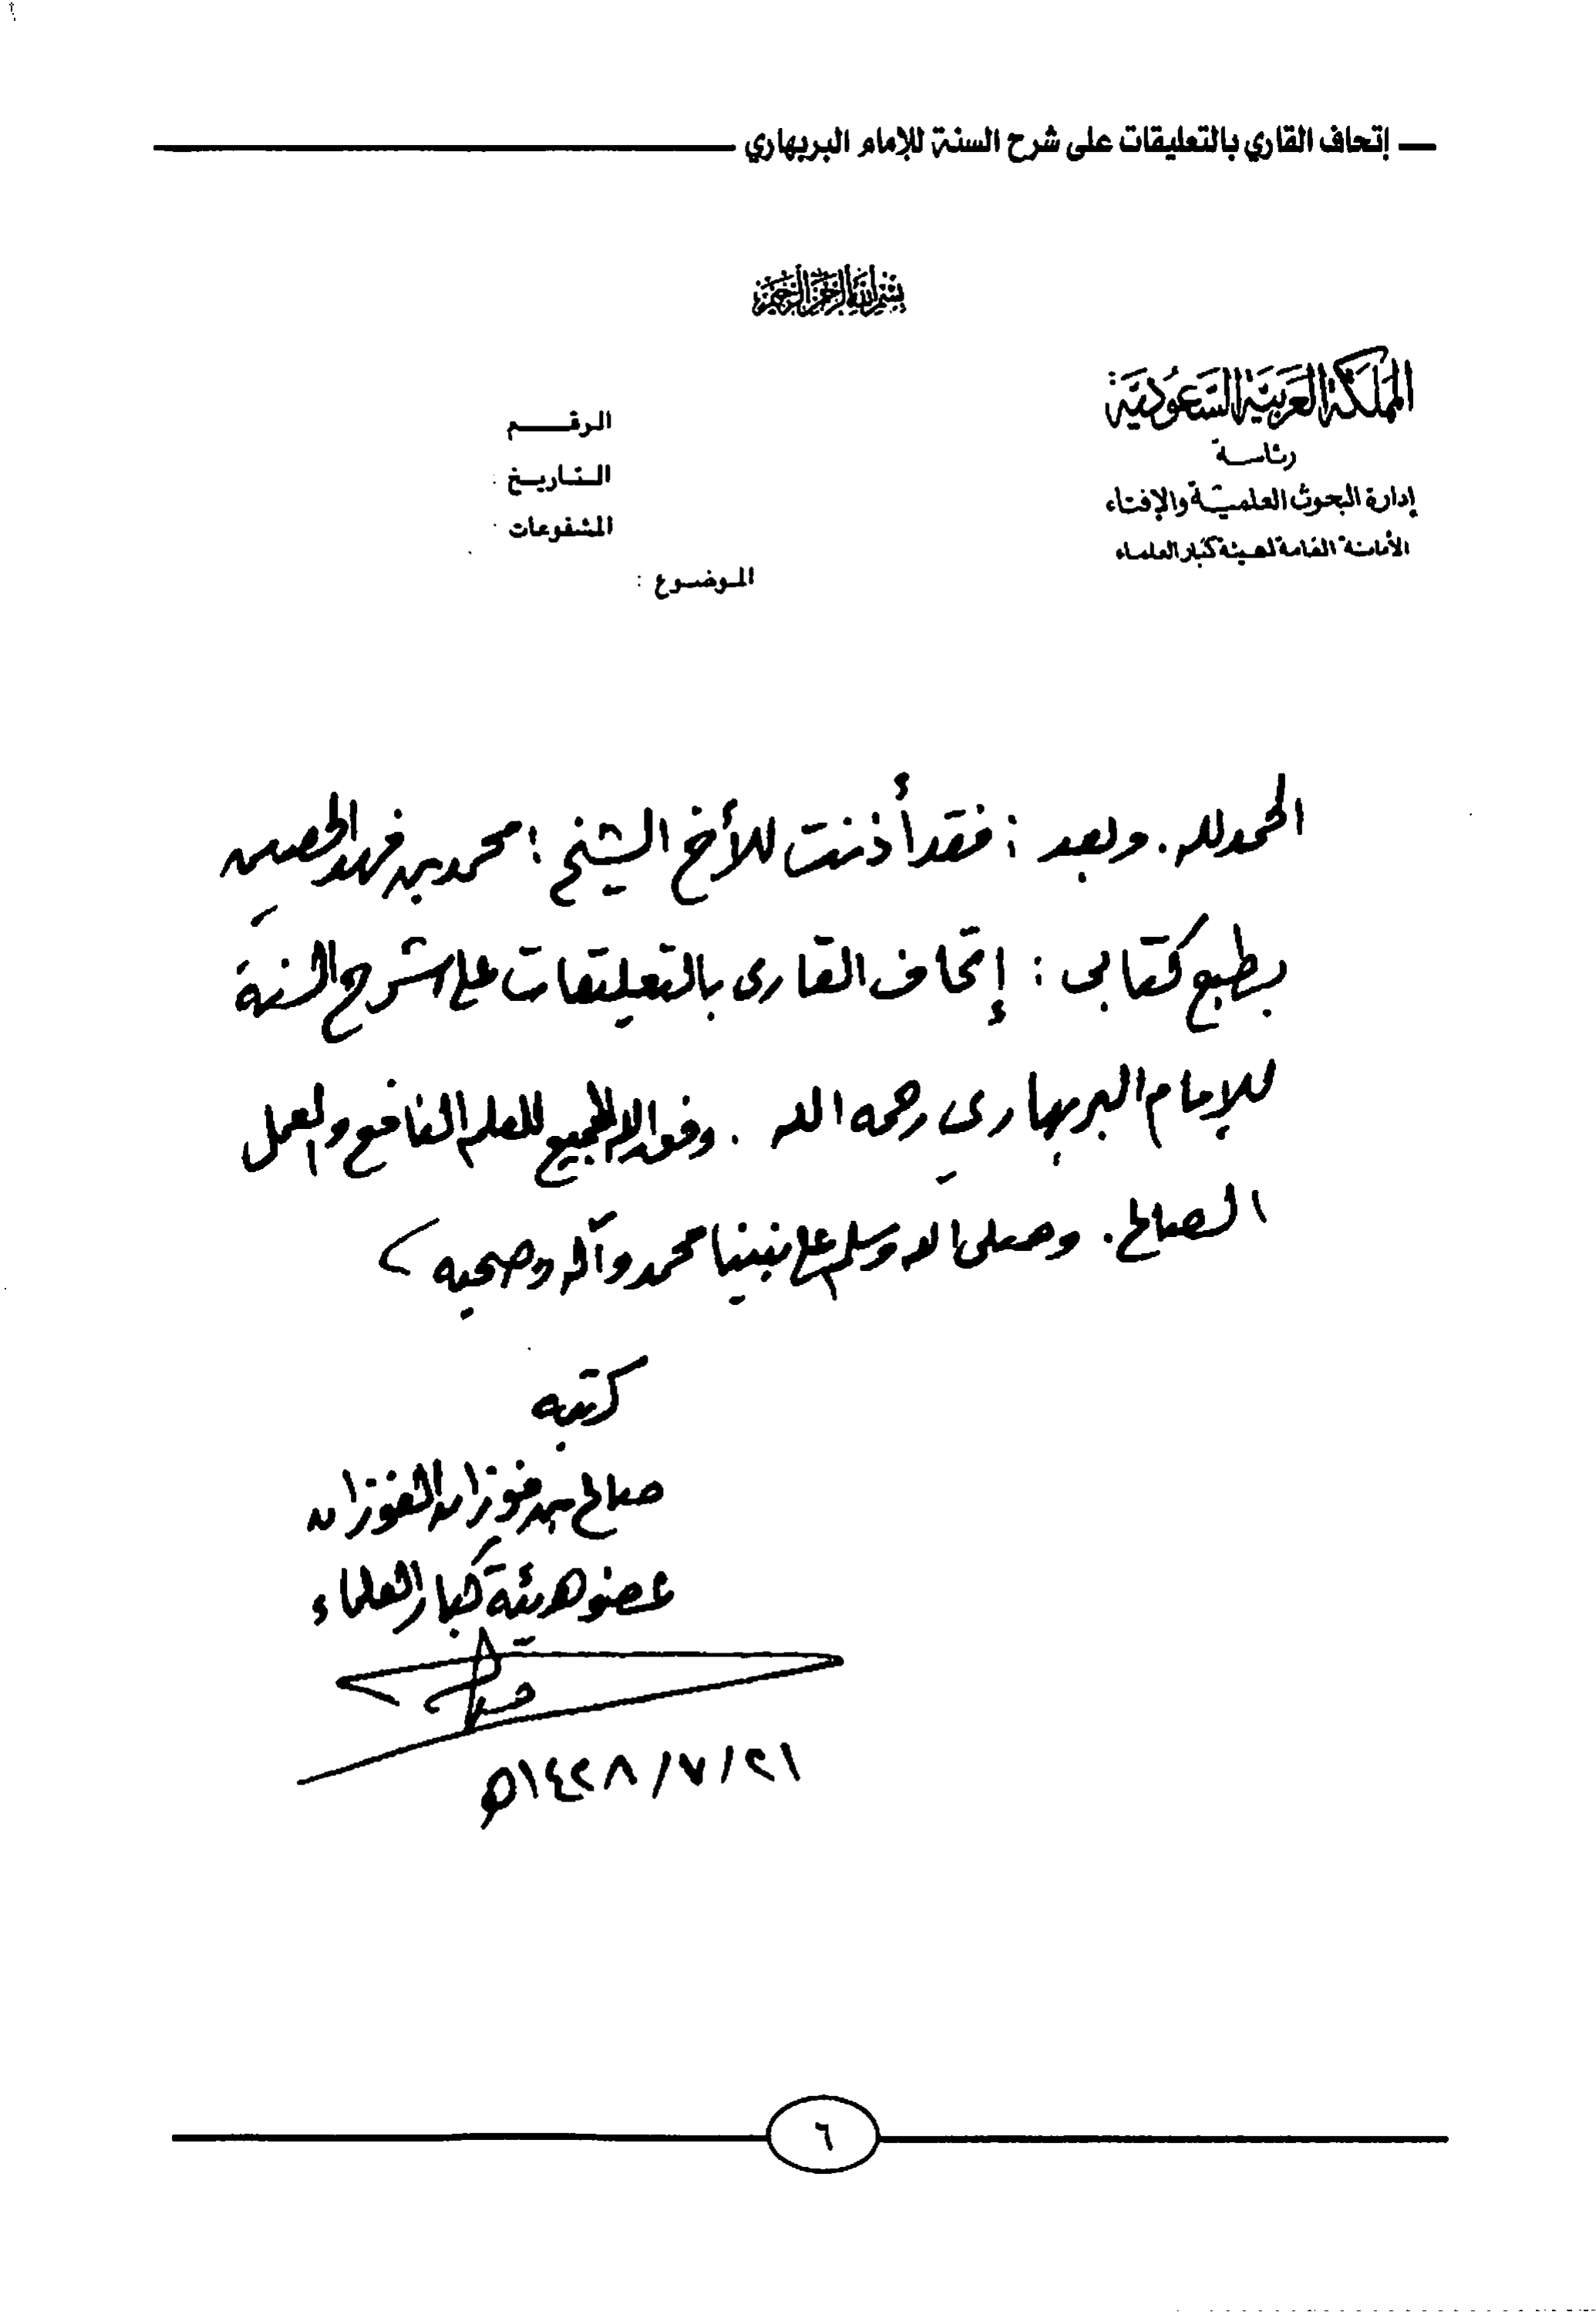 إتحاف القاري بالتعليقات على شرح السنة للإمام البربهاري
بسم الله الرحمن الرحيم
المملكة العربية السعودية
رئاسة
إدارة البحوث العلمية والإفتاء
الأمانة العامة لهيئة كبار العلماء
الرقم
التاريخ :
المشفوعات
الموضوع :
الحمد لله . وبعد : فقد أذنت للأخ الشيخ : محمد بن فهد الحصين
بطبع كتابي : إتحاف القارى بالتعليقات على شرح السنة
للإمام البربهاري رحمه الله . وفق الله الجميع للعلم النافع والعمل
الصالح . وصلى الله وسلم على نبينا محمد وآله وصحبه
كتبه
صالح بن فوزان الفوزان
عضو هيئة كبار العلماء
٢١/٧/١٤٢٨هـ
٦